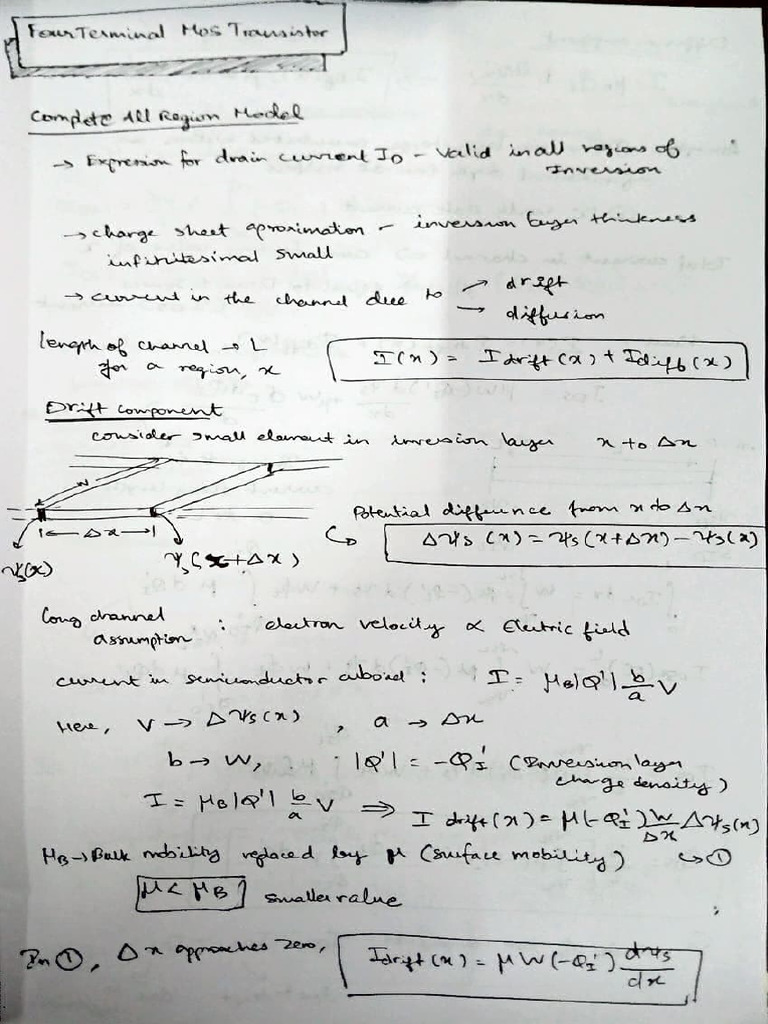 Four Terminal Mos Transistor
Complete All Region Model
→ Expression for drain current I_D - Valid in all regions of
Inversion
→ charge sheet aproximation - inversion layer thickness
infinitesimal small
→ current in the channel due to → drift
→ diffusion
length of channel → L
for a region, x
I(x) = I drift(x) + I diff(x)
Drift component
consider small element in inversion layer x to Δx
W
|← Δx →|
ψs(x)
ψs(x+Δx)
Potential difference from x to Δx
Δψs(x) = ψs(x+Δx) - ψs(x)
Long channel
assumption : electron velocity ∝ Electric field
current in semiconductor cuboid : I = μB|Q'| b/a V
Here, V → Δψs(x) , a → Δx
b → W, |Q'| = -QI' (Inversion layer
charge density)
I = μB|Q'| b/a V ⟹ I drift(x) = μ(-QI') W/Δx Δψs(x)
μB → Bulk mobility replaced by μ (surface mobility) ↪ ①
μ < μB smaller value
In ①, Δx approaches zero, Idrift(x) = μW(-QI') dψs/dx